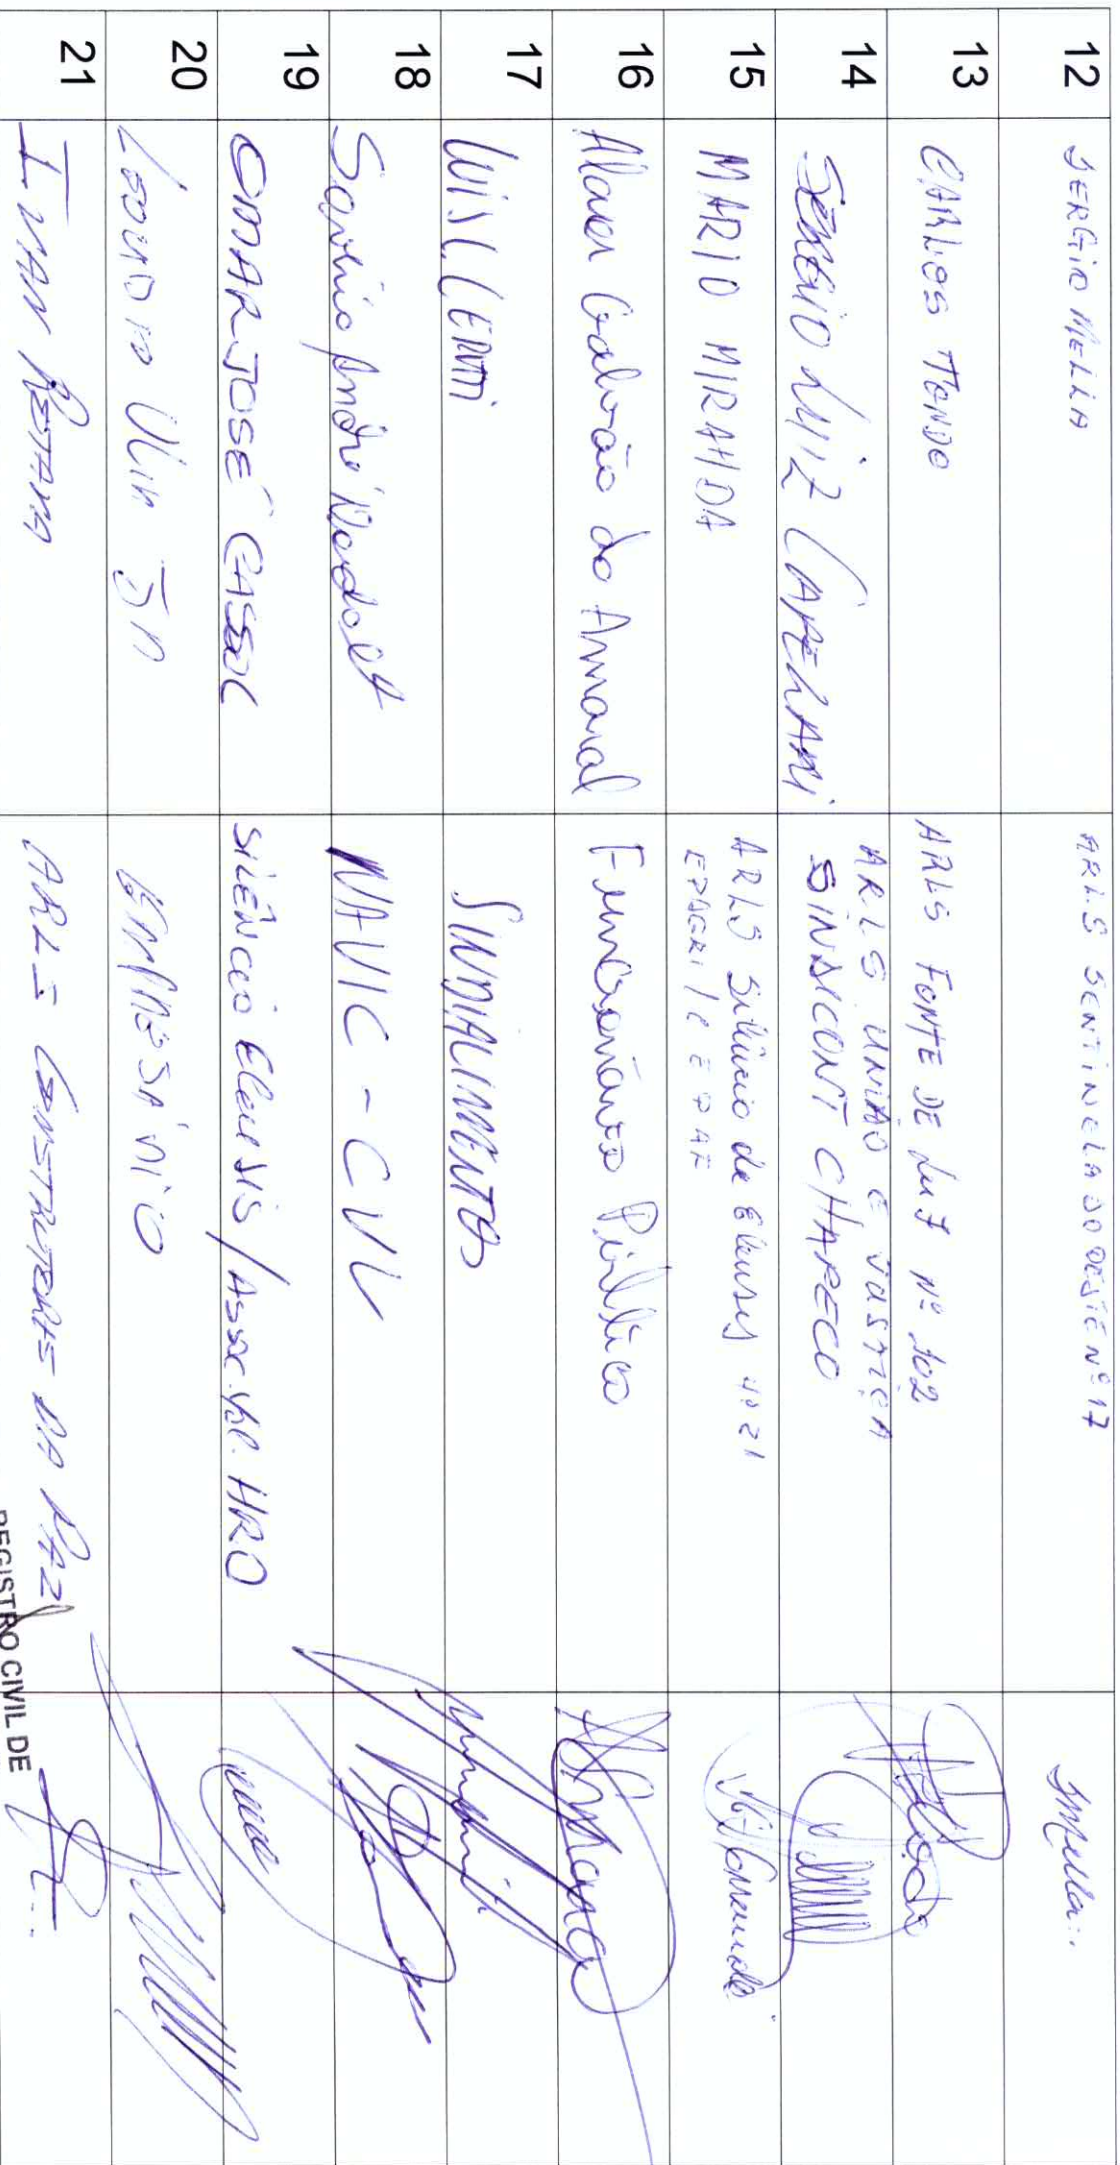 12 SERGIO MELLA ARLS SENTINELA DO OESTE Nº 17
13 CARLOS TONDO ARLS FONTE DE LUZ Nº 102
14 SERGIO LUIZ CAPELANI ARLS UNIÃO E JUSTIÇA
SINDICONT CHAPECO
15 MARIO MIRANDA ARLS Silêncio de Eleusis Nº 21
EPAGRI / CEPAF
16 Galvão do Amaral Funcionário Público
17 LUIS CERUTTI SINDIALIMENTOS
18 Savério André Nardolff NAVIC - CVV
19 OMAR JOSÉ CASSOL SILÊNCIO Eleusis / Assoc. Vol. HRO
20 JR EMPRESÁRIO
21 IVAN ARLS CONSTRUTORES DA PAZ
REGISTRO CIVIL DE